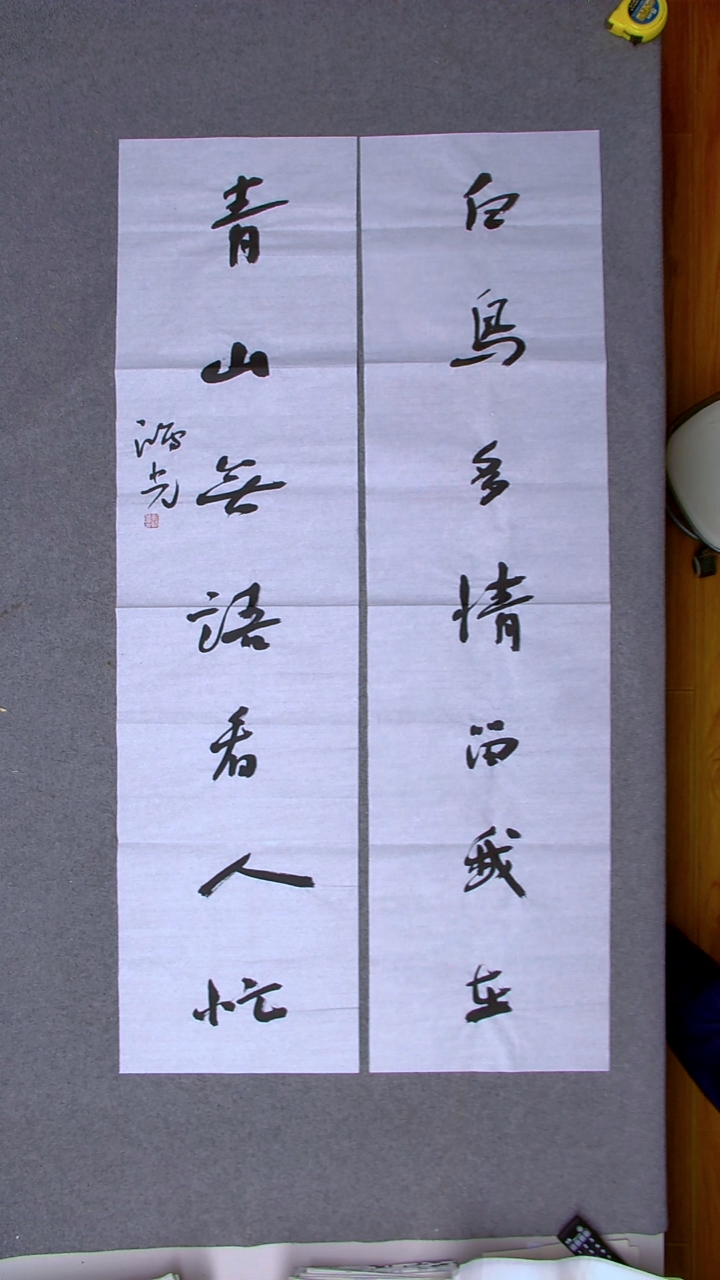 白鳥多情留我在
青山無語看人忙
鴻光